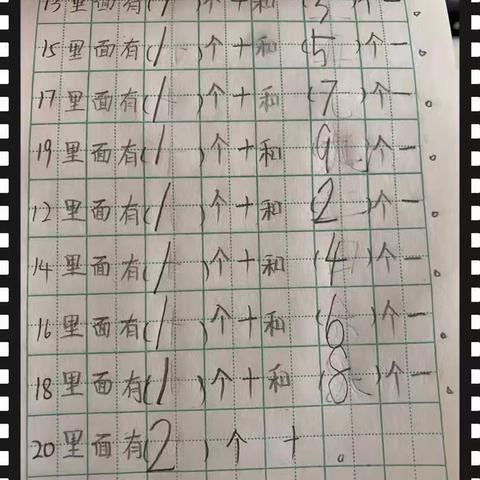 13里面有(1)个十和(3)个一。
15里面有(1)个十和(5)个一。
17里面有(1)个十和(7)个一。
19里面有(1)个十和(9)个一。
12里面有(1)个十和(2)个一。
14里面有(1)个十和(4)个一。
16里面有(1)个十和(6)个一。
18里面有(1)个十和(8)个一。
20里面有(2)个十。